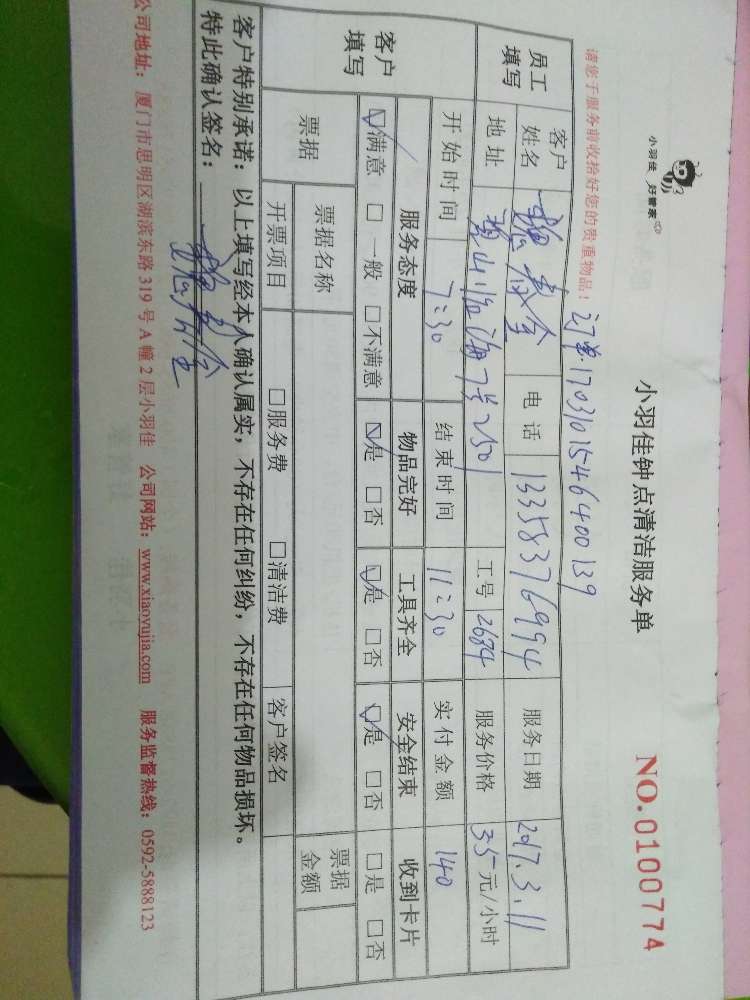 小羽佳 好管家
小羽佳钟点清洁服务单
NO.0100774
请您于服务前收拾好您的贵重物品！ 订单17031015464400139
员工填写 客户姓名 电话 13358376994 服务日期 2017.3.11
地址 临海7号2501 工号 2684 服务价格 35元/小时
开始时间 7:30 结束时间 11:30 实付金额 140
客户填写 服务态度 物品完好 工具齐全 安全结束 收到卡片
☑满意 □一般 □不满意 ☑是 □否 ☑是 □否 ☑是 □否 □是 □否
票据 票据名称 票据金额
开票项目 □服务费 □清洁费 客户签名
客户特别承诺：以上填写经本人确认属实，不存在任何纠纷，不存在任何物品损坏。
特此确认签名：
公司地址：厦门市思明区湖滨东路319号A幢2层小羽佳 公司网站：www.xiaoyujia.com 服务监督热线：0592-5888123